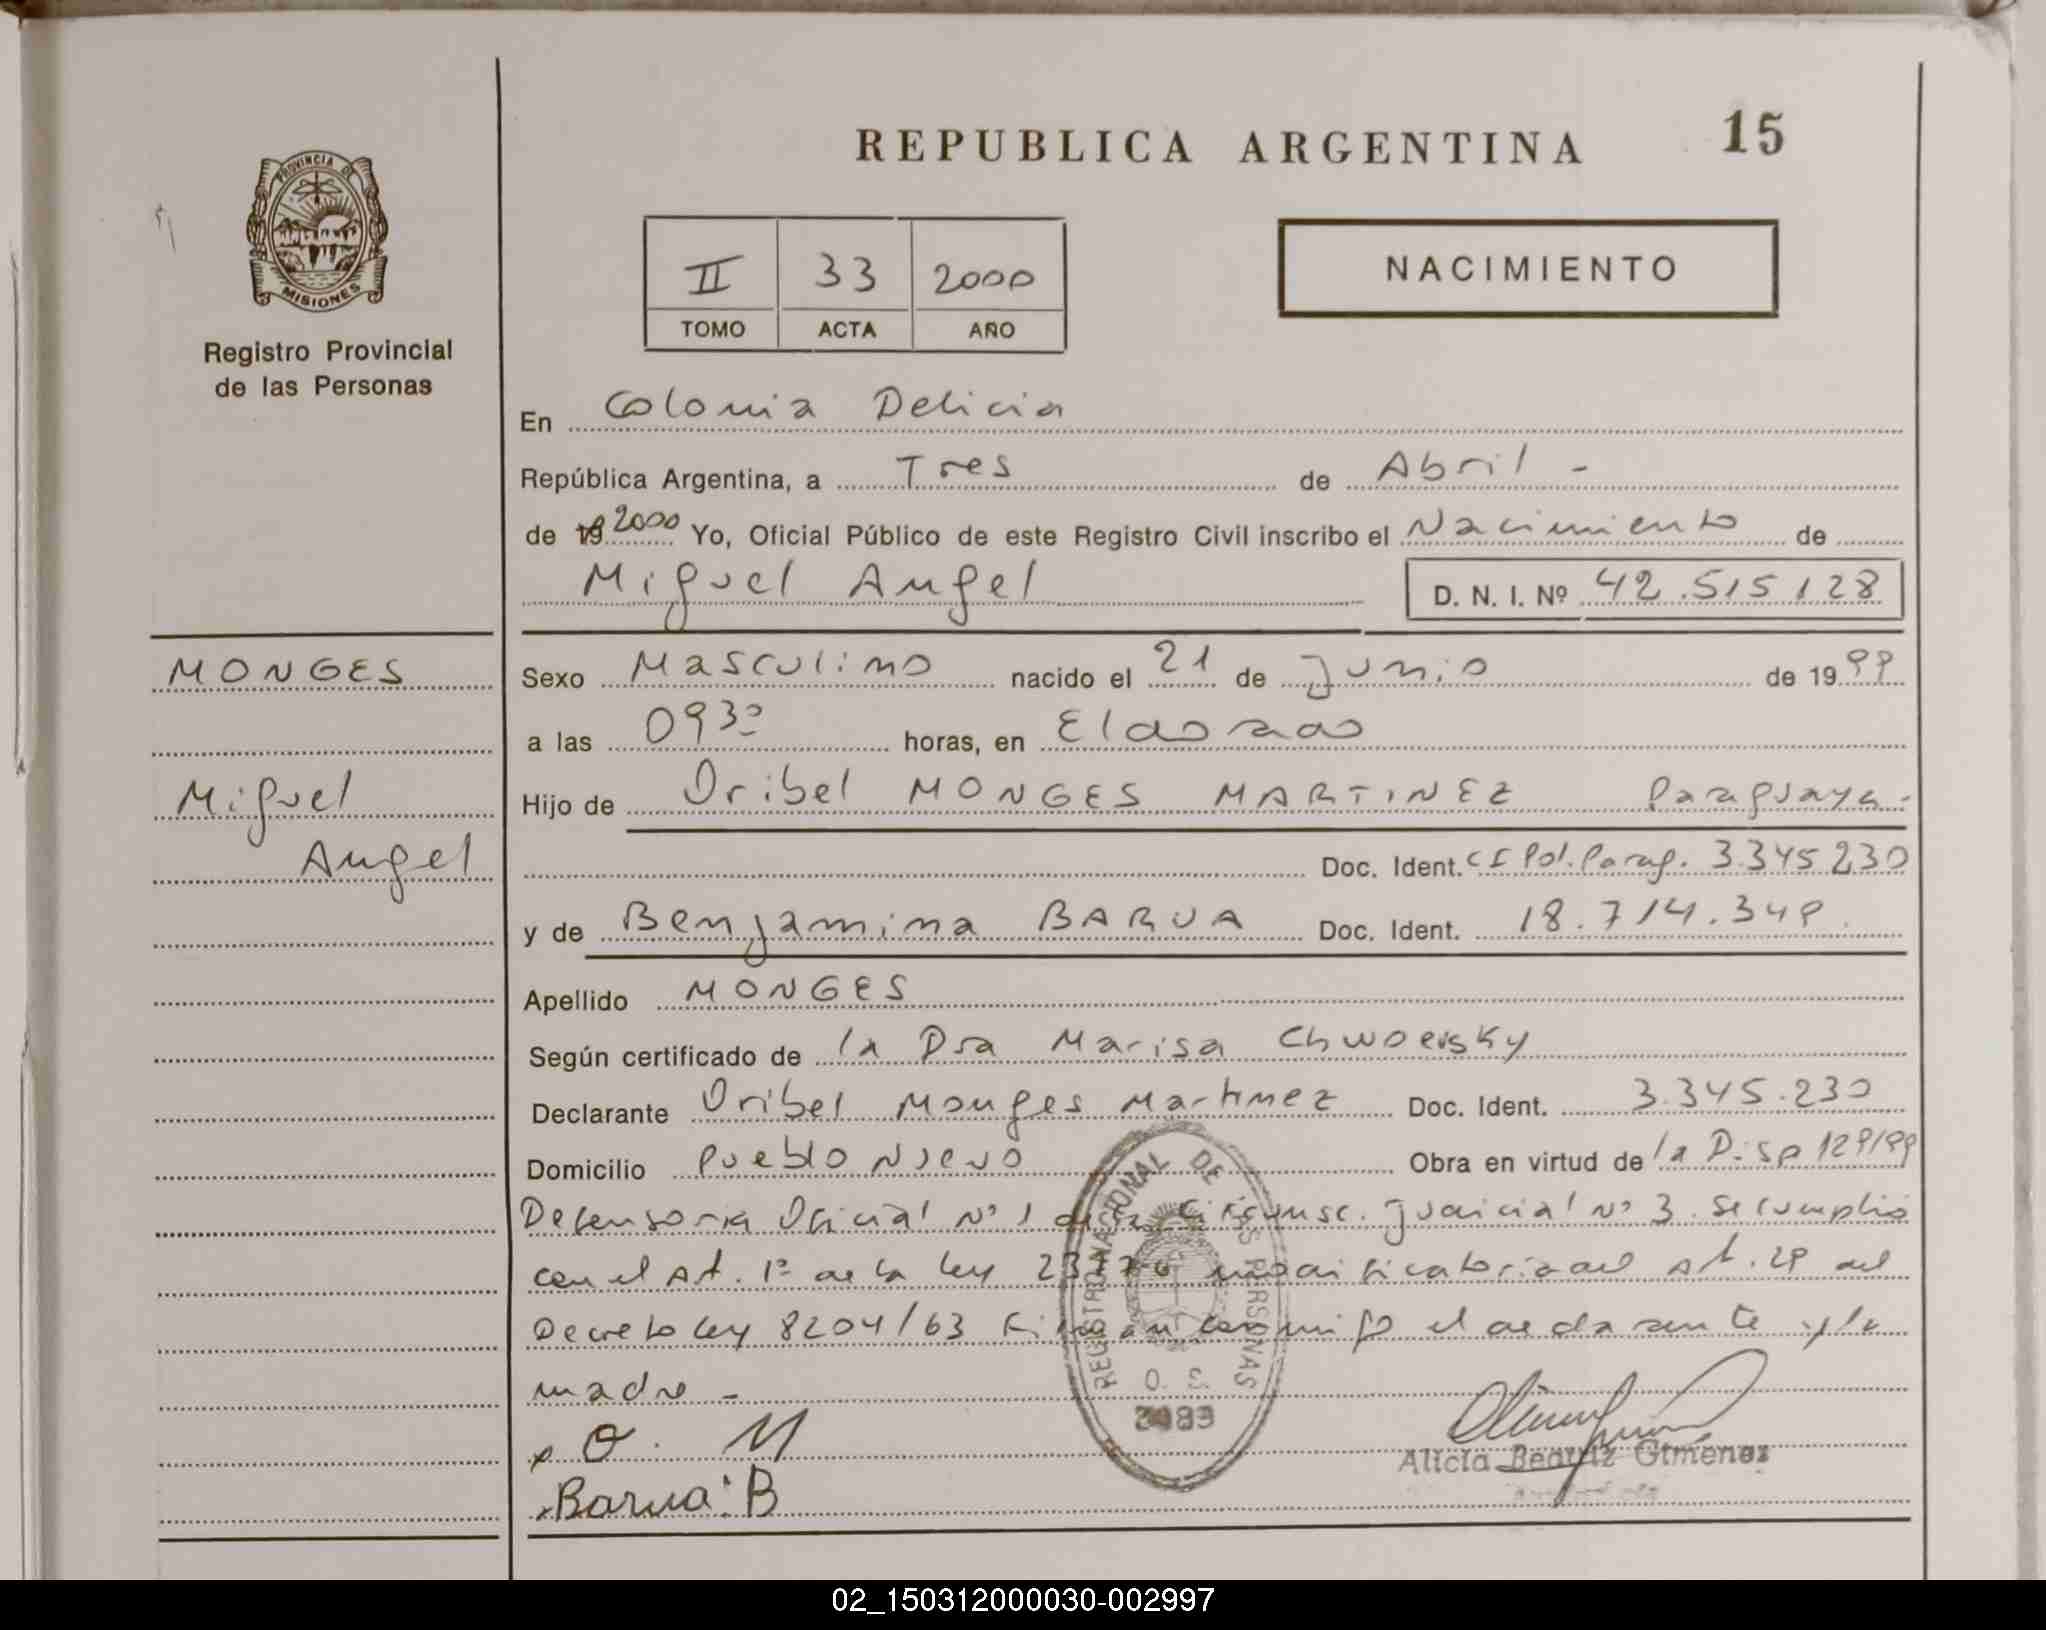 REPUBLICA ARGENTINA 15
PROVINCIA DE
MISIONES
Registro Provincial
de las Personas
II 33 2000
TOMO ACTA AÑO
NACIMIENTO
En Colonia Delicia
República Argentina, a Tres de Abril -
de 19 2000 Yo, Oficial Público de este Registro Civil inscribo el Nacimiento de
Miguel Angel D. N. I. Nº 42.515.128
MONGES
Miguel
Angel
Sexo Masculino nacido el 21 de Junio de 1999
a las 0930 horas, en Eldorado
Hijo de Oribel MONGES MARTINEZ Paraguaya-
Doc. Ident. CI Pol. Parag. 3.345.230
y de Benjamina BARUA Doc. Ident. 18.714.349.
Apellido MONGES
Según certificado de la Dra Marisa
Declarante Oribel Monges Martinez Doc. Ident. 3.345.230
Domicilio Pueblo Nuevo Obra en virtud de la Disp 129/99
Defensoria Oficial Nº 1 de la Circunsc. Judicial Nº 3. Se cumplio
con el Art. 1º de la Ley 23776 modificatoria del Art. 29 del
Decreto Ley 8204/63 Firman conmigo el declarante y la
madre -
x O. M
x Barua B
REGISTRO NACIONAL DE LAS PERSONAS
O. S.
Alicia Beatriz Gimenez
02_150312000030-002997